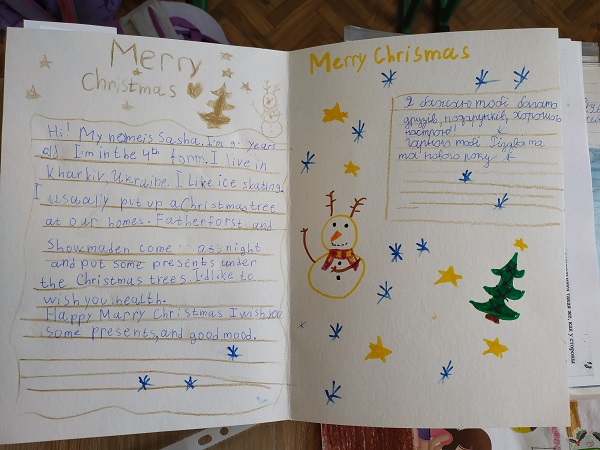 Merry
Christmas
Hi! My name is Sasha. I'm 9 years
old I'm in the 4th form. I live in
Kharkiv, Ukraine. I Like ice skating.
I usually put up a Christmas tree
at our homes. Father forst and
Showmaden come at night
and put some presents under
the Christmas trees. I'd like to
wish you health.
Happy Marry Christmas I wish you
some presents, and good mood.
Merry Chrismas
Я бажаю тобі багато
друзів, подарунків, хорошого
настрою!
Гарного тобі Різдва та
та нового року